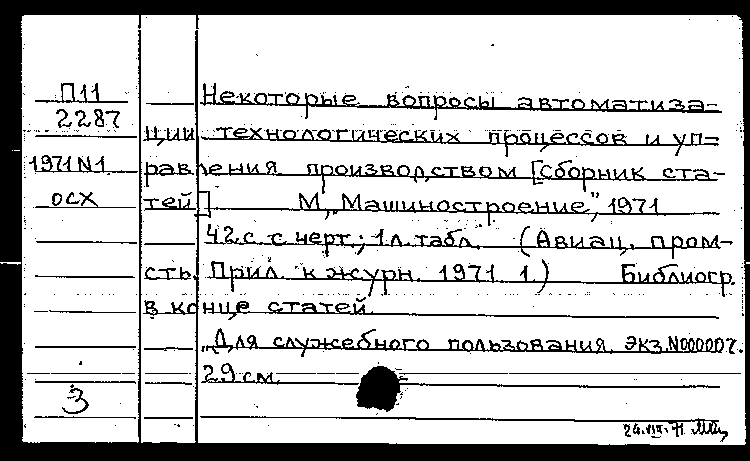 П11
2287
1971 N1
осх
Некоторые вопросы автоматиза-
ции технологических процессов и уп-
равления производством [сборник ста-
тей] М, „Машиностроение", 1971
42 с. с черт.; 1 л. табл. (Авиац. пром-
сть. Прил. к журн. 1971 1.) Библиогр.
в конце статей.
„Для служебного пользования. Экз. N000007.
29 см.
3